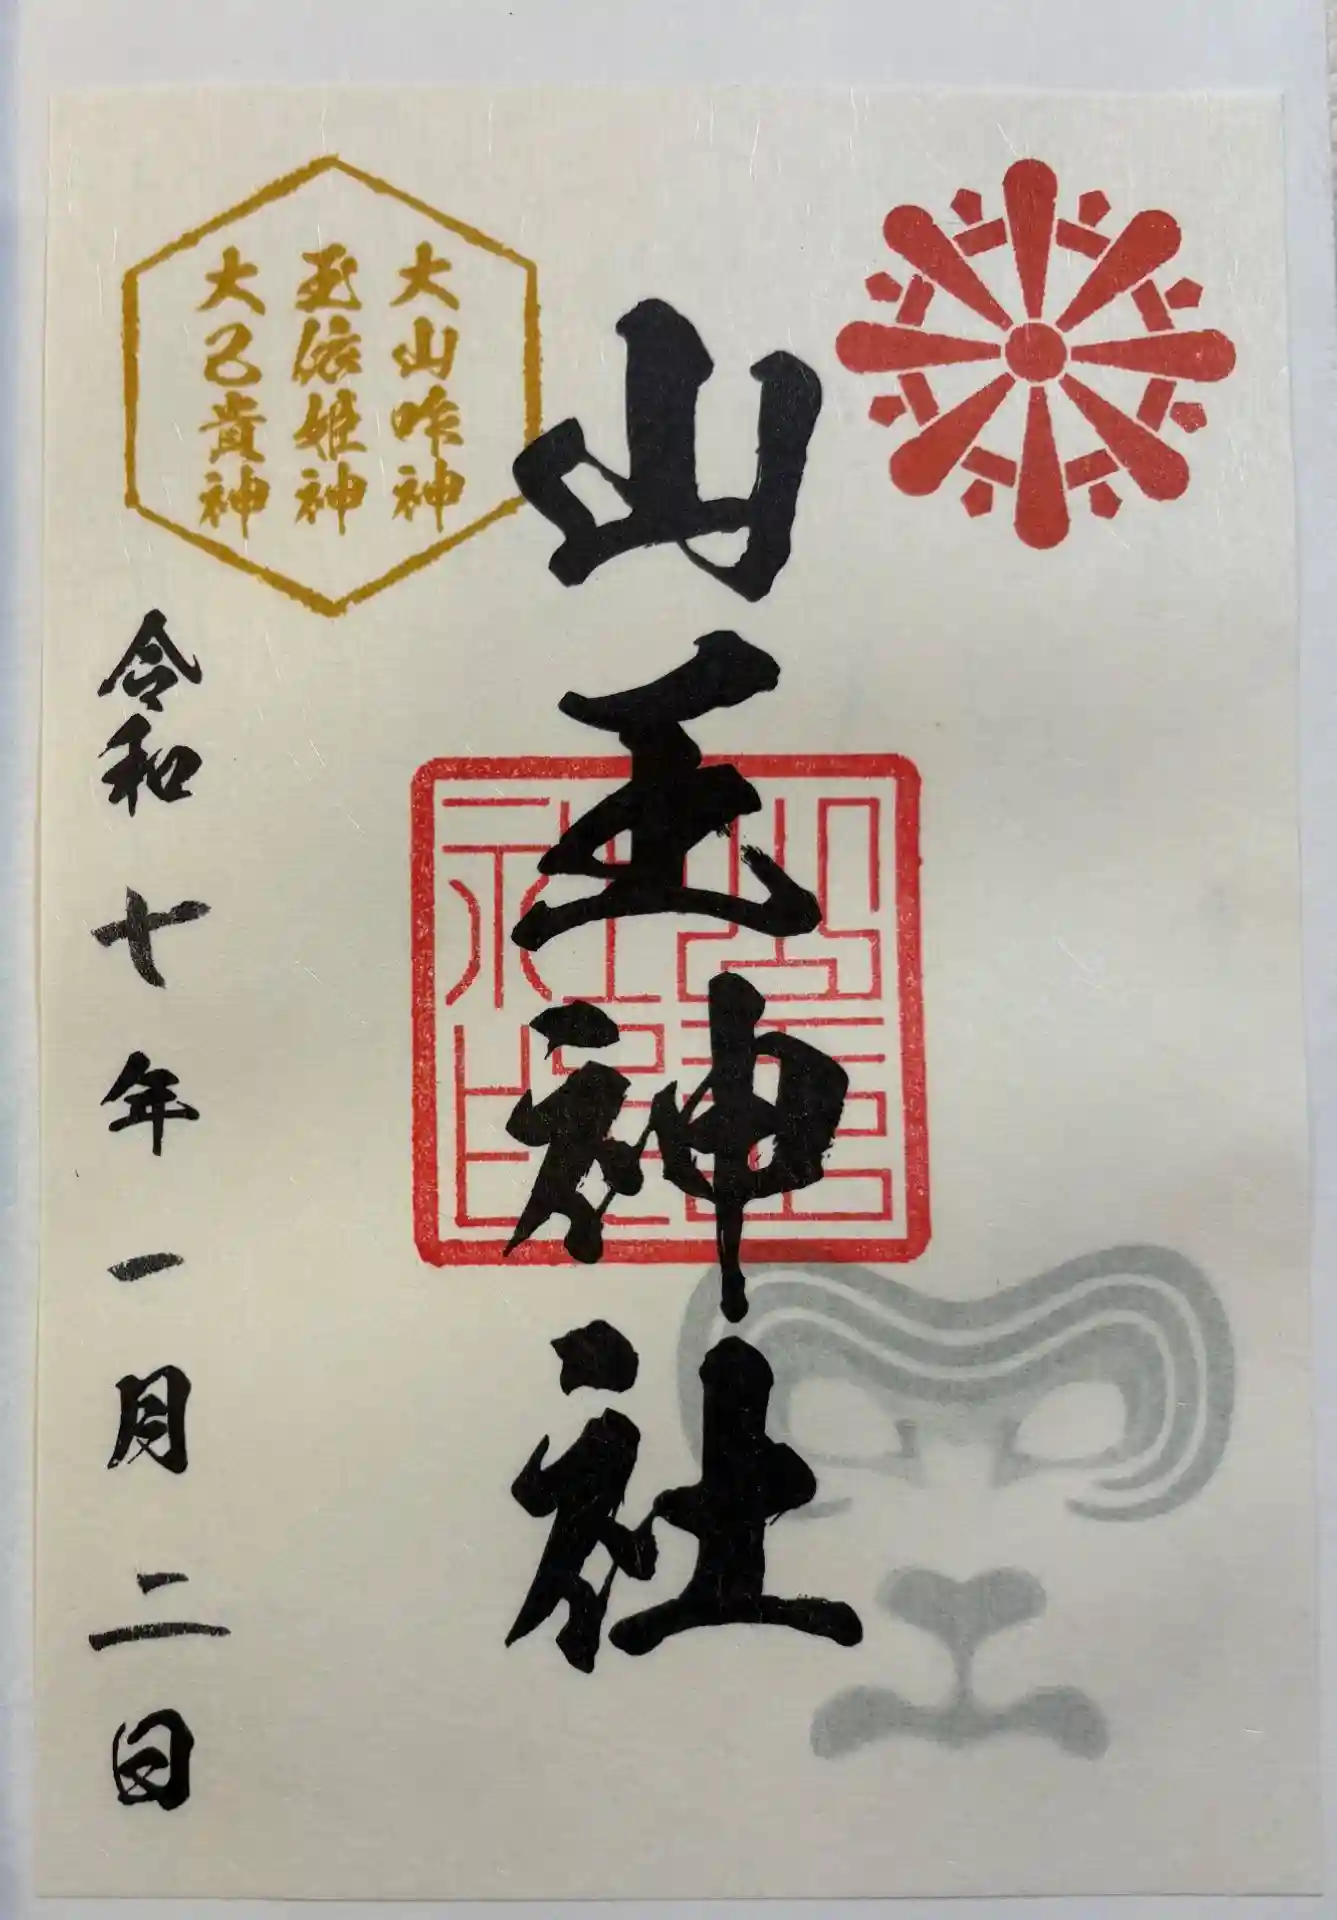 大山咋神
玉依姫神
大己貴神
山王神社
令和十年一月二日